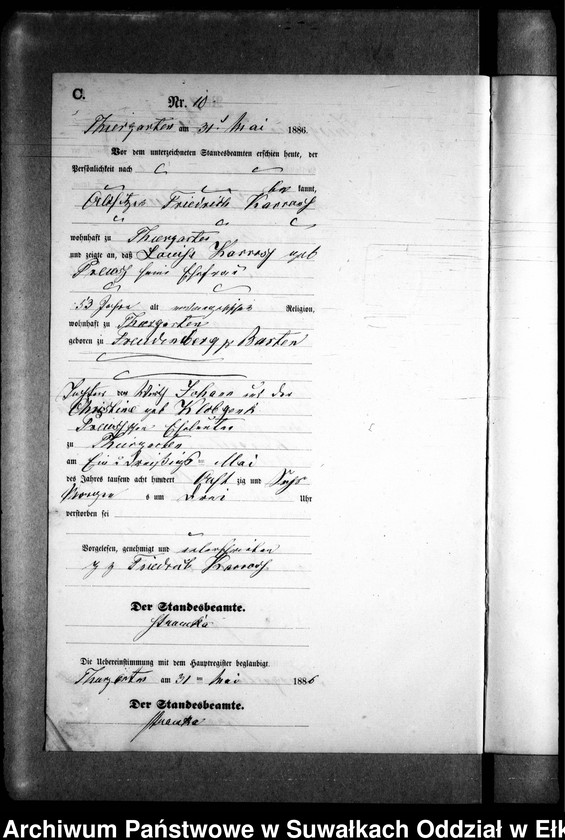 C.
Nr. 10
Thiergarten am 31 Mai 1886.
Vor dem unterzeichneten Standesbeamten erschien heute, der
Persönlichkeit nach
be kannt,
Altsitzer Friedrich Karrasch
wohnhaft zu Thiergarten
und zeigte an, daß Louise Karrasch geb
Preuß seine Ehefrau
53 Jahre alt evangelischer Religion,
wohnhaft zu Thiergarten
geboren zu Freudenberg p Barten
Tochter der Wirth Johann und der
Christine geb
Eheleuten
zu Thiergarten
am Ein u dreißigs Mai
des Jahres tausend acht hundert Acht zig und Sechs
Morgen s um Drei Uhr
verstorben sei
Vorgelesen, genehmigt und unterschrieben
Friedrich Karrasch
Der Standesbeamte.
Die Uebereinstimmung mit dem Hauptregister beglaubigt.
Thiergarten am 31 Mai 1886
Der Standesbeamte.
Archiwum Państwowe w Suwałkach Oddział w Ełk